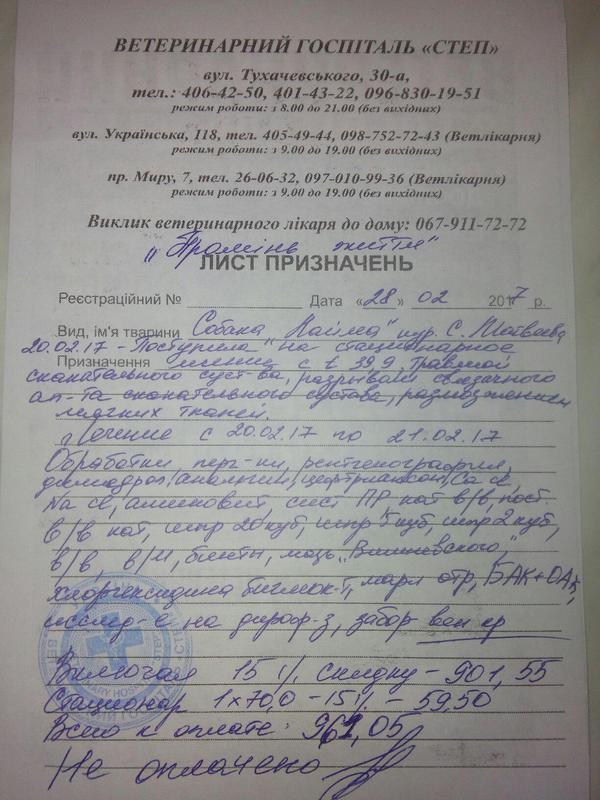 ВЕТЕРИНАРНИЙ ГОСПІТАЛЬ «СТЕП»
вул. Тухачевського, 30-а,
тел.: 406-42-50, 401-43-22, 096-830-19-51
режим роботи: з 8.00 до 21.00 (без вихідних)
вул. Українська, 118, тел. 405-49-44, 098-752-72-43 (Ветлікарня)
режим роботи: з 9.00 до 19.00 (без вихідних)
пр. Миру, 7, тел. 26-06-32, 097-010-99-36 (Ветлікарня)
режим роботи: з 9.00 до 19.00 (без вихідних)
Виклик ветеринарного лікаря до дому: 067-911-72-72
"Промінь життя"
ЛИСТ ПРИЗНАЧЕНЬ
Реєстраційний № Дата «28» 02 2017 р.
Вид, ім'я тварини Собака "Найма" кур. С. Матвеева
20.02.17 - Поступила на стационарное
Призначення лечение с t 39,9, травмой
скакательного суст-ва, разрывами связочного
ап-та скакательного сустава, размозжением
мягких тканей.
Лечение с 20.02.17 по 21.02.17
Обработки, рентгенография,
димедрол, анальгин, цефтриаксон, Ca
Na, аминовит, сист ПР, кат в/в, пост
в/в кат, шпр 20 куб, шпр 5 куб, шпр 2 куб,
в/в, в/м, бинты, мазь "Вишневского",
хлоргексидина биглюк-т, марл отр, БАК+ОАК,
исслед-е на дироф-з, забор вен кр
Включая 15% скидку - 901,55
Стационар 1х70,0 - 15% - 59,50
Всего к оплате: 961,05
Не оплачено